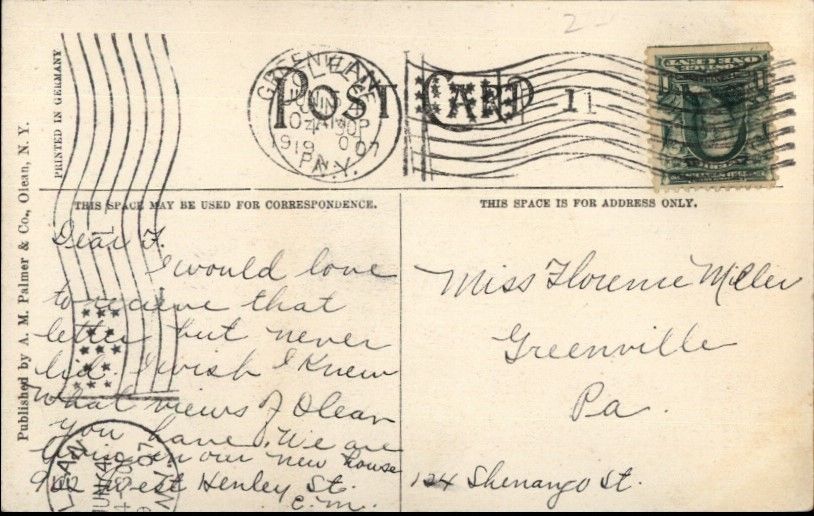 POST CARD
PRINTED IN GERMANY
Published by A. M. Palmer & Co., Olean, N. Y.
THIS SPACE MAY BE USED FOR CORRESPONDENCE.
THIS SPACE IS FOR ADDRESS ONLY.
Dear F.
I would love
to recieve that
letter but never
did. I wish I knew
what views of Olean
you have. We are
living in our new house
912 West Henley St.
E.M.
Miss Florence Miller
Greenville
Pa.
124 Shenango St.